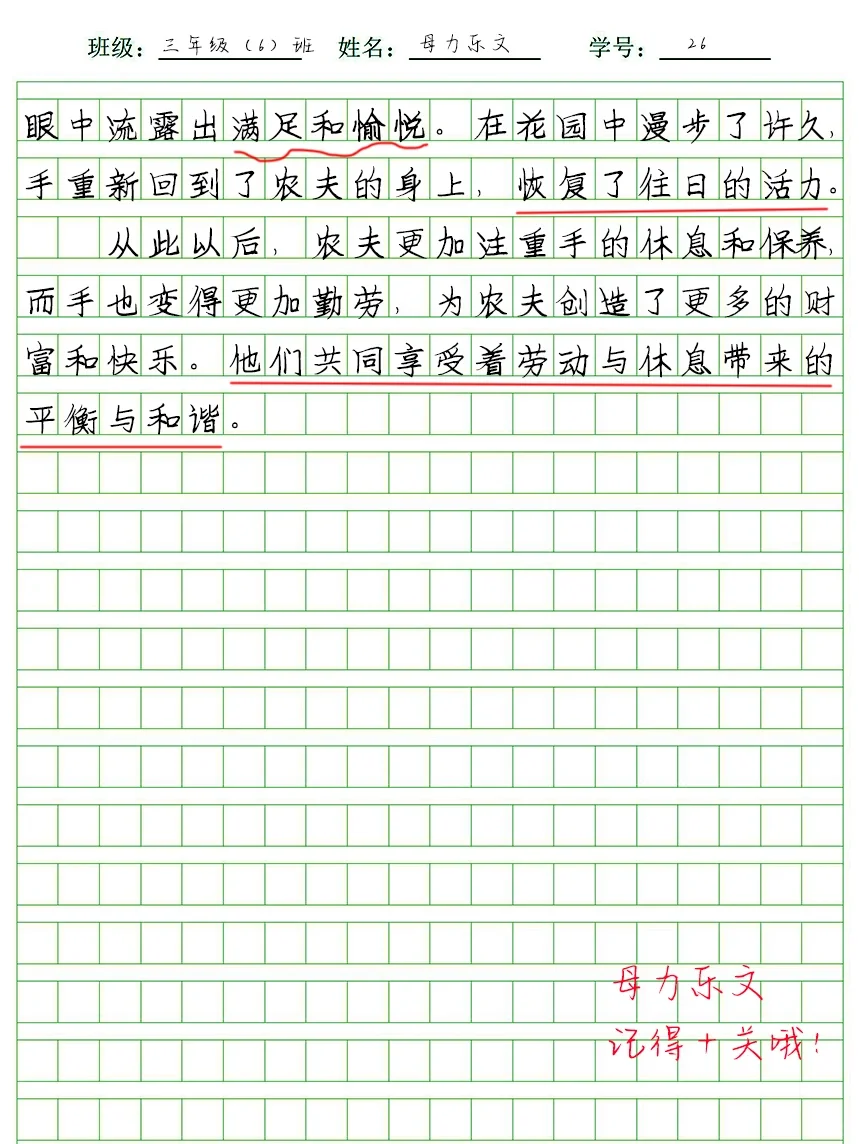 班级：三年级（6）班 姓名：母力乐文 学号：26
眼中流露出满足和愉悦。在花园中漫步了许久，
手重新回到了农夫的身上，恢复了往日的活力。
从此以后，农夫更加注重手的休息和保养，
而手也变得更加勤劳，为农夫创造了更多的财
富和快乐。他们共同享受着劳动与休息带来的
平衡与和谐。
母力乐文
记得十关哦！